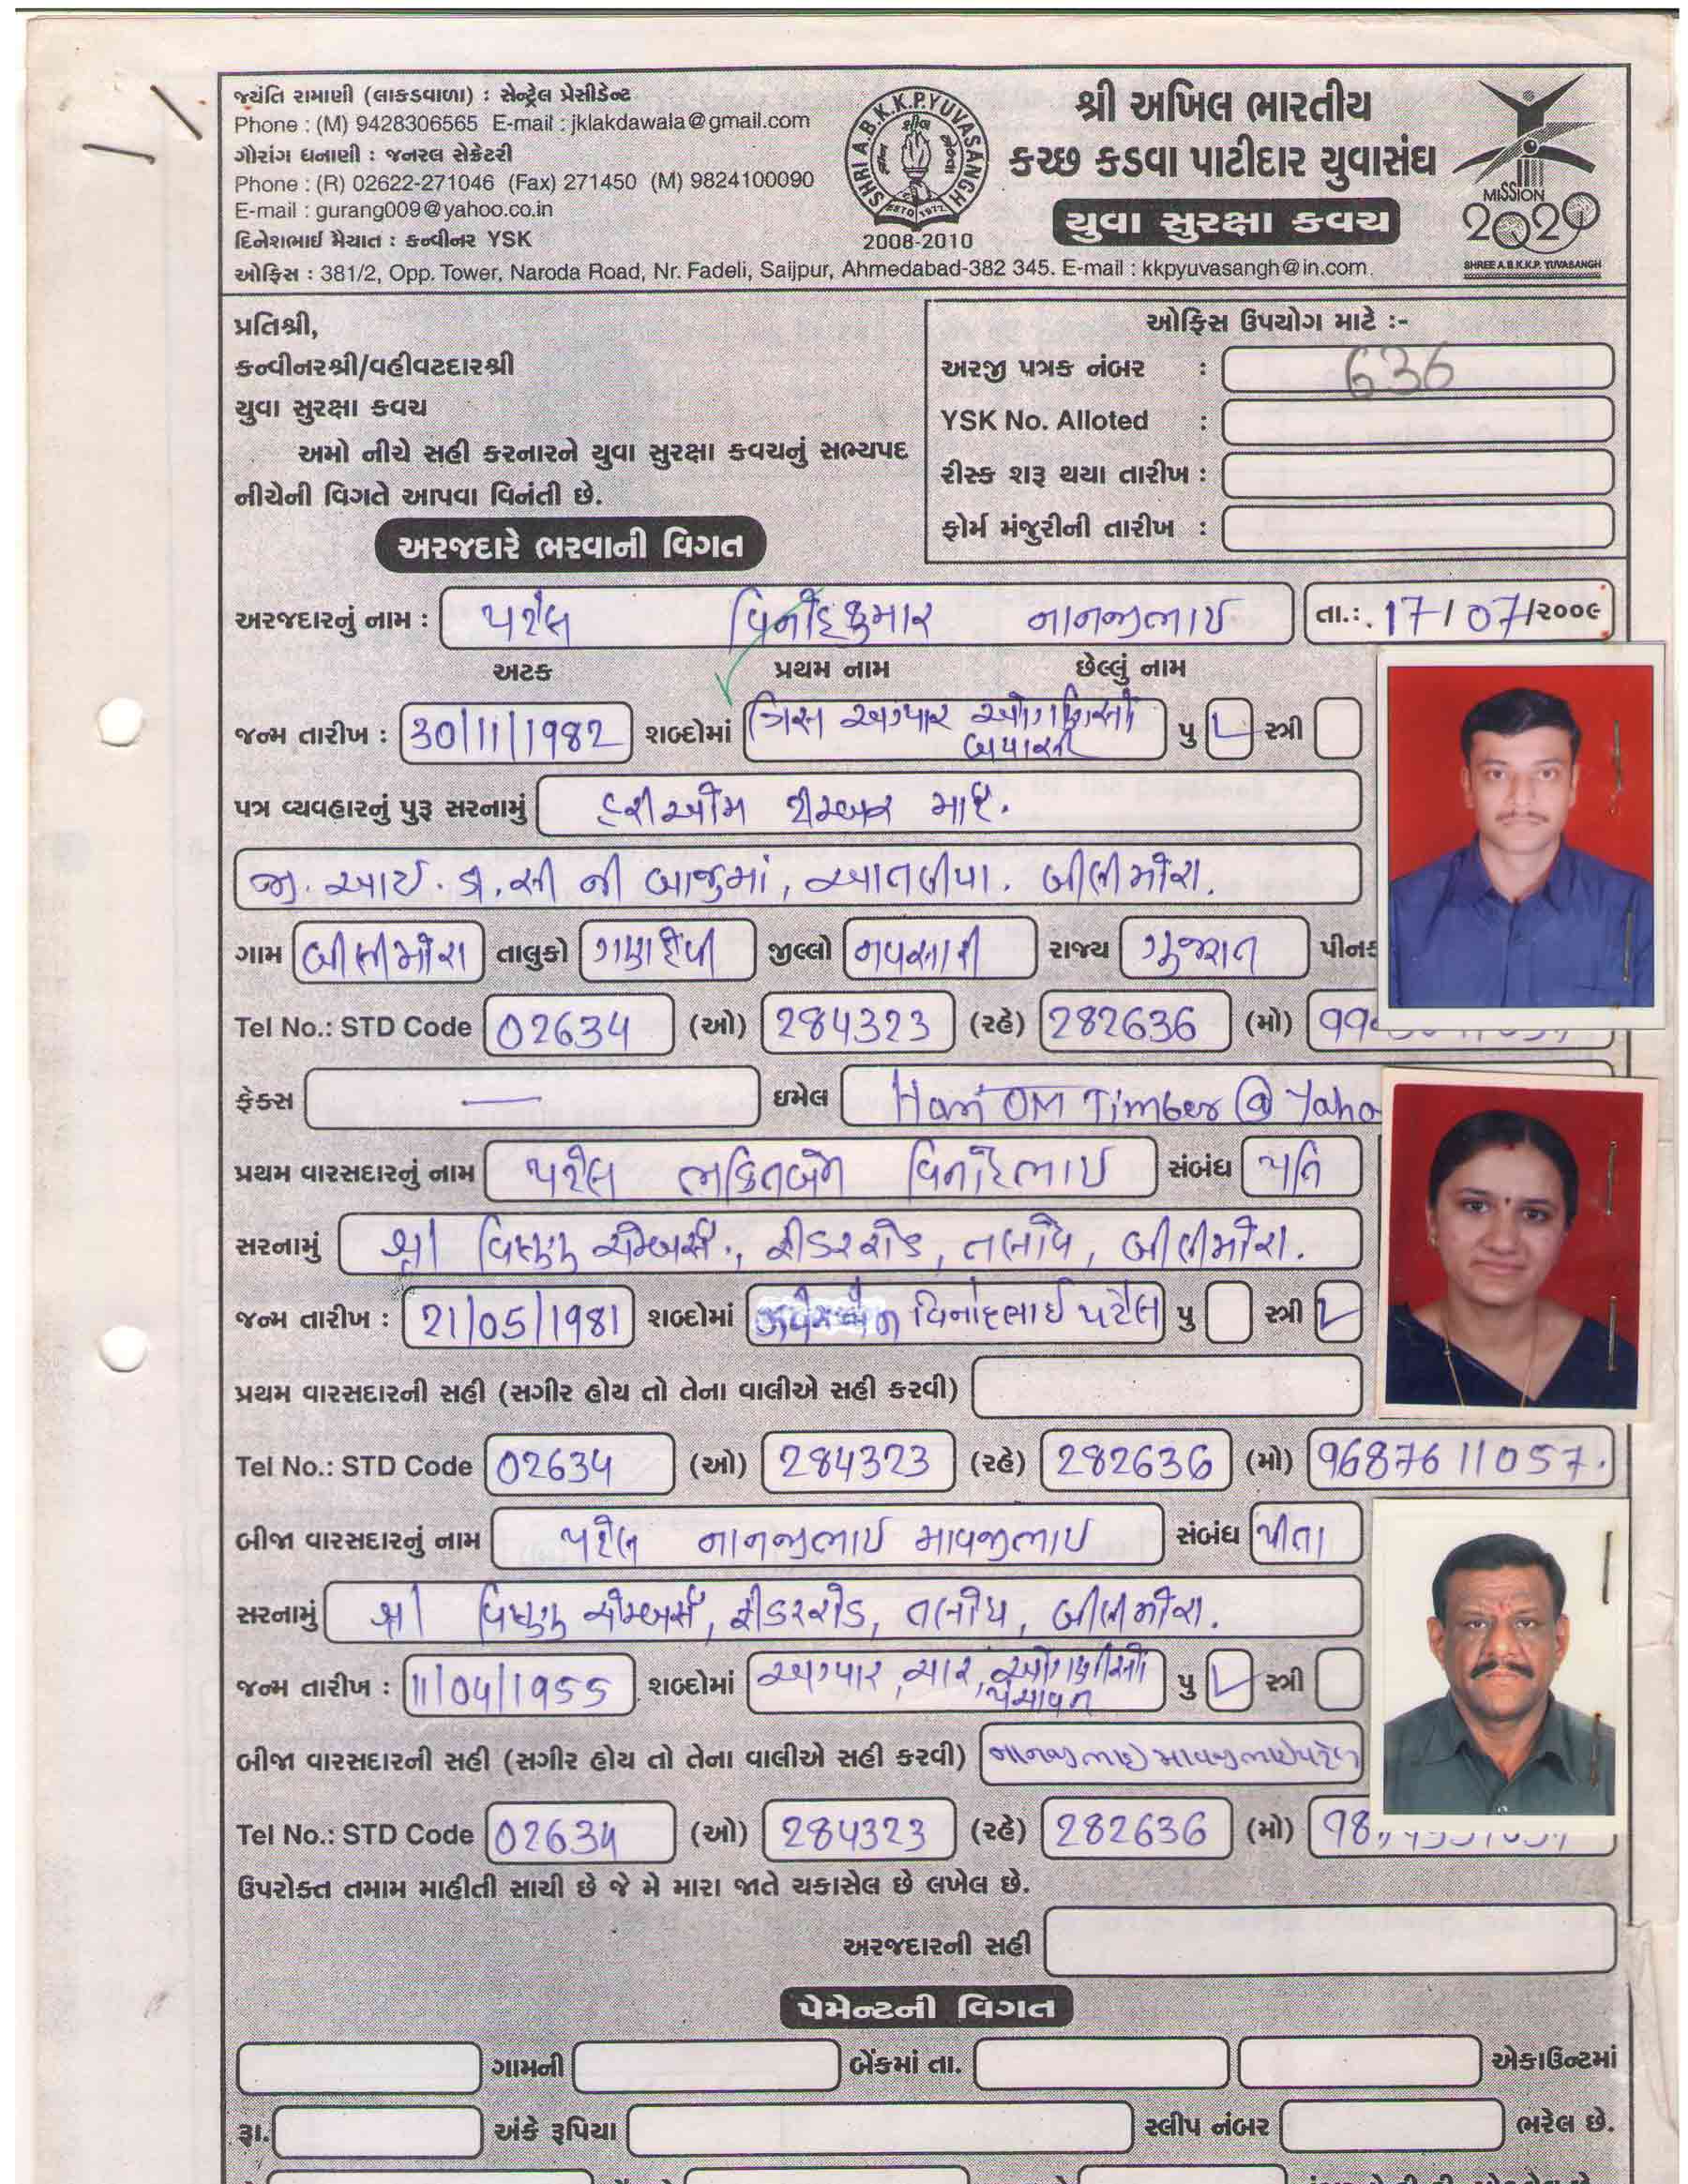 જયંતિ રામાણી (લાકડાવાળા) : સેન્ટ્રેલ પ્રેસીડેન્ટ
Phone : (M) 9428306565 E-mail : jklakdawala@gmail.com
ગૌરાંગ ધનાણી : જનરલ સેક્રેટરી
Phone : (R) 02622-271046 (Fax) 271450 (M) 9824100090
E-mail : gurang009@yahoo.co.in
દિનેશભાઈ મૈયાત : કન્વીનર YSK
SHRI A.B.K.K.P. YUVASANGH
ESTD 1972
2008-2010
શ્રી અખિલ ભારતીય
કચ્છ કડવા પાટીદાર યુવાસંઘ
યુવા સુરક્ષા કવચ
MISSION
2020
SHREE A.B.K.K.P. YUVASANGH
ઓફિસ : 381/2, Opp. Tower, Naroda Road, Nr. Fadeli, Saijpur, Ahmedabad-382 345. E-mail : kkpyuvasangh@in.com.
પ્રતિશ્રી,
કન્વીનરશ્રી/વહીવટદારશ્રી
યુવા સુરક્ષા કવચ
અમો નીચે સહી કરનારને યુવા સુરક્ષા કવચનું સભ્યપદ
નીચેની વિગતે આપવા વિનંતી છે.
ઓફિસ ઉપયોગ માટે :-
અરજી પત્રક નંબર : 636
YSK No. Alloted :
રીસ્ક શરૂ થયા તારીખ :
ફોર્મ મંજુરીની તારીખ :
અરજદારે ભરવાની વિગત
અરજદારનું નામ : પટેલ વિનોદકુમાર નાનજીભાઈ તા.: 17/07/૨૦૦૯
અટક પ્રથમ નામ છેલ્લું નામ
જન્મ તારીખ : 30/11/1982 શબ્દોમાં ત્રિસ અગ્યાર ઓગણિસો બયાસી પુ સ્ત્રી
પત્ર વ્યવહારનું પુરૂ સરનામું હરીઓમ ટીમ્બર માર્ટ.
જી.આઈ.ડી.સી ની બાજુમાં, આતલીયા. બીલીમોરા.
ગામ બીલીમોરા તાલુકો ગણદેવી જીલ્લો નવસારી રાજ્ય ગુજરાત પીનક
Tel No.: STD Code 02634 (ઓ) 284323 (રહે) 282636 (મો) 99
ફેક્સ — ઇમેલ Hari OM Timber @ Yaho
પ્રથમ વારસદારનું નામ પટેલ ભક્તિબેન વિનોદભાઈ સંબંધ પત્નિ
સરનામું શ્રી વિષ્ણુ ચેમ્બર્સ., ફીડરરોડ, તલોધ, બીલીમોરા.
જન્મ તારીખ : 21/05/1981 શબ્દોમાં વિનોદભાઈ પટેલ પુ સ્ત્રી
પ્રથમ વારસદારની સહી (સગીર હોય તો તેના વાલીએ સહી કરવી)
Tel No.: STD Code 02634 (ઓ) 284323 (રહે) 282636 (મો) 9687611057.
બીજા વારસદારનું નામ પટેલ નાનજીભાઈ માવજીભાઈ સંબંધ પીતા
સરનામું શ્રી વિષ્ણુ ચેમ્બર્સ, ફીડરરોડ, તલોધ, બીલીમોરા.
જન્મ તારીખ : 11/04/1955 શબ્દોમાં અગ્યાર, ચાર, ઓગણીસો પંચાવન પુ સ્ત્રી
બીજા વારસદારની સહી (સગીર હોય તો તેના વાલીએ સહી કરવી) નાનજીભાઈ માવજીભાઈ પટેલ
Tel No.: STD Code 02634 (ઓ) 284323 (રહે) 282636 (મો) 98
ઉપરોક્ત તમામ માહીતી સાચી છે જે મે મારા જાતે ચકાસેલ છે લખેલ છે.
અરજદારની સહી
પેમેન્ટની વિગત
ગામની બેંકમાં તા. એકાઉન્ટમાં
રૂા. અંકે રૂપિયા સ્લીપ નંબર ભરેલ છે.